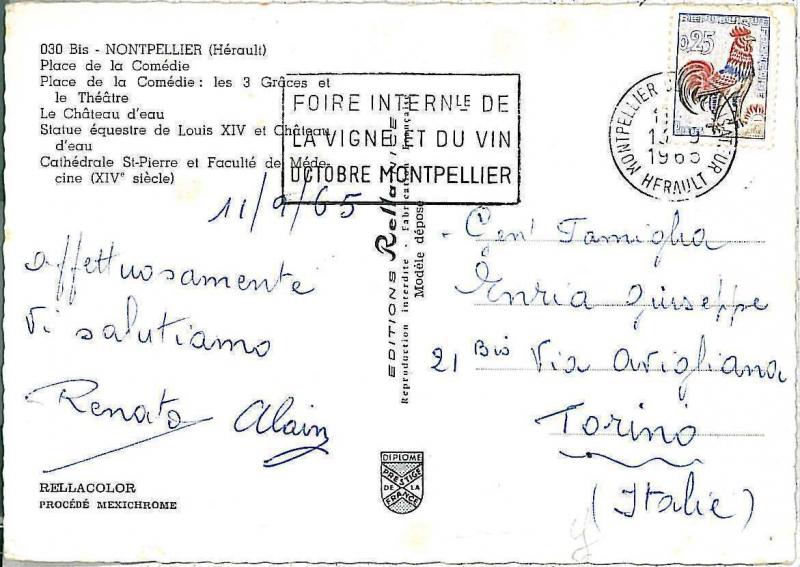 030 Bis - NONTPELLIER (Hérault)
Place de la Comédie
Place de la Comédie : les 3 Grâces et
le Théâtre
Le Château d'eau
Statue équestre de Louis XIV et Château
d'eau
Cathédrale St-Pierre et Faculté de Méde-
cine (XIVe siècle)
FOIRE INTERNLE DE
LA VIGNE ET DU VIN
OCTOBRE MONTPELLIER
REPUBLIQUE FRANÇAISE
0,25
MONTPELLIER
13 - 9
1965
HERAULT
11/9/65
affettuosamente
Vi salutiamo
Renato Alain
RELLACOLOR
PROCÉDÉ MEXICHROME
EDITIONS Rella NICE
Reproduction interdite - Fabrication Française
Modèle déposé
DIPLOME
PRESTIGE
DE LA
FRANCE
Gen Famiglia
Enria Giuseppe
21 Bis Via Avigliana
Torino
(Italie)